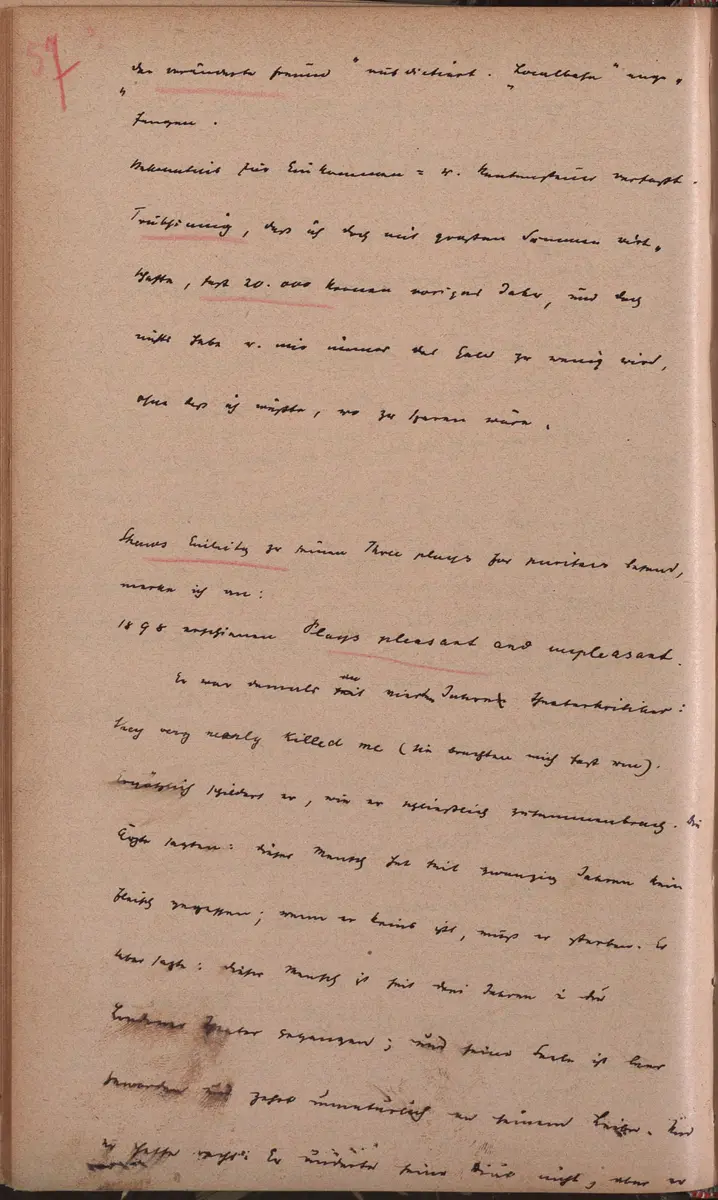 57
der veränderte Freund" ausdictiert. „Localbahn" ange„
„fangen.
Bekenntnis zur Einkommen = u. Rentensteuer verfasst.
Trübsinnig, daß ich doch mit großen Summen wirt„
schafte, fast 20.000 Kronen voriges Jahr, und doch
nichts habe u. mir immer das Geld zu wenig wird,
ohne daß ich wüßte, wo zu sparen wäre.
Shaws Einleitg zu seinen Three plays for puritans lesend,
merke ich an:
1898 erschienen Plays pleasant and unpleasant.
Er war damals seit vier Jahren Theaterkritiker:
they very nearly killed me (sie brachten mich fast um).
Ergötzlich schildert er, wie er schließlich zusammenbrach. Die
Ärzte sagten: dieser Mensch hat seit zwanzig Jahren kein
Fleisch gegessen; wenn er keins ißt, muß er sterben. Er
aber sagte: dieser Mensch ist seit drei Jahren in die
Londoner Theater gegangen; und seine Seele ist leer
geworden und zehrt unnatürlich an seinem Leibe. Und
er hatte recht: Er änderte seine Diät nicht; aber er